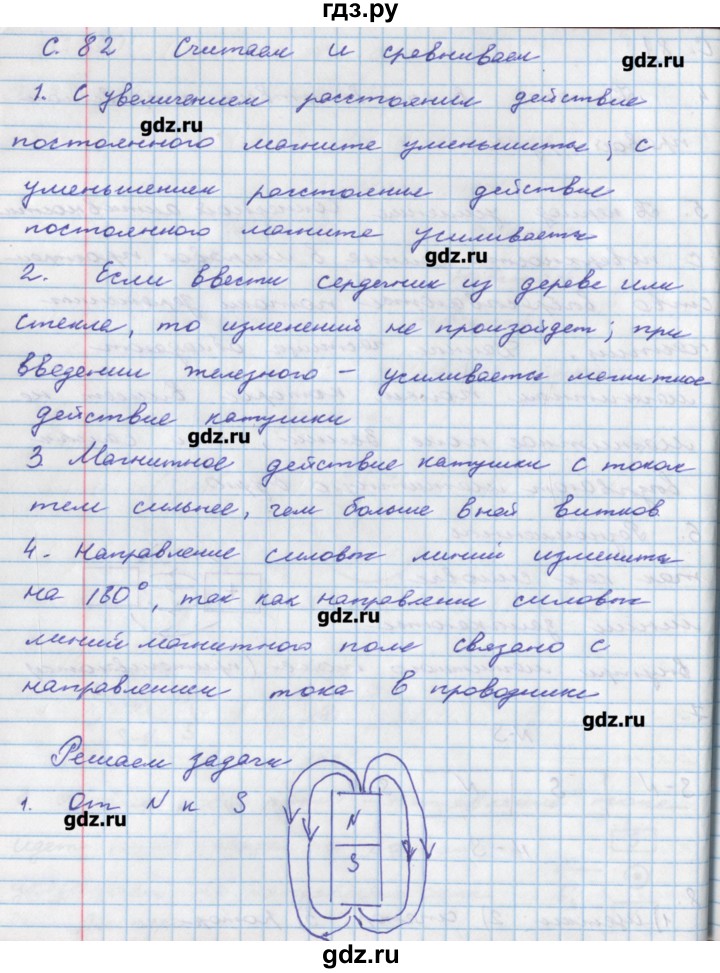 гдз.ру
С. 82 Считаем и сравниваем
gdz.ru
1. С увеличением расстояния действие
gdz.ru
постоянного магнита уменьшиться, с
уменьшением расстояния действие
постоянного магнита усиливается
gdz.ru
2. Если ввести сердечник из дерева или
стекла, то изменений не произойдет; при
введении железного – усиливается магнитное
действие катушки
gdz.ru
3 Магнитное действие катушки с током
тем сильнее, чем больше в ней витков
4. Направление силовых линий изменится
на 180°, так как направление силовых
gdz.ru
линий магнитного поля связано с
направлением тока в проводнике
gdz.ru
Решаем задачи
1. От N к S
gdz.ru
N
S
gdz.ru